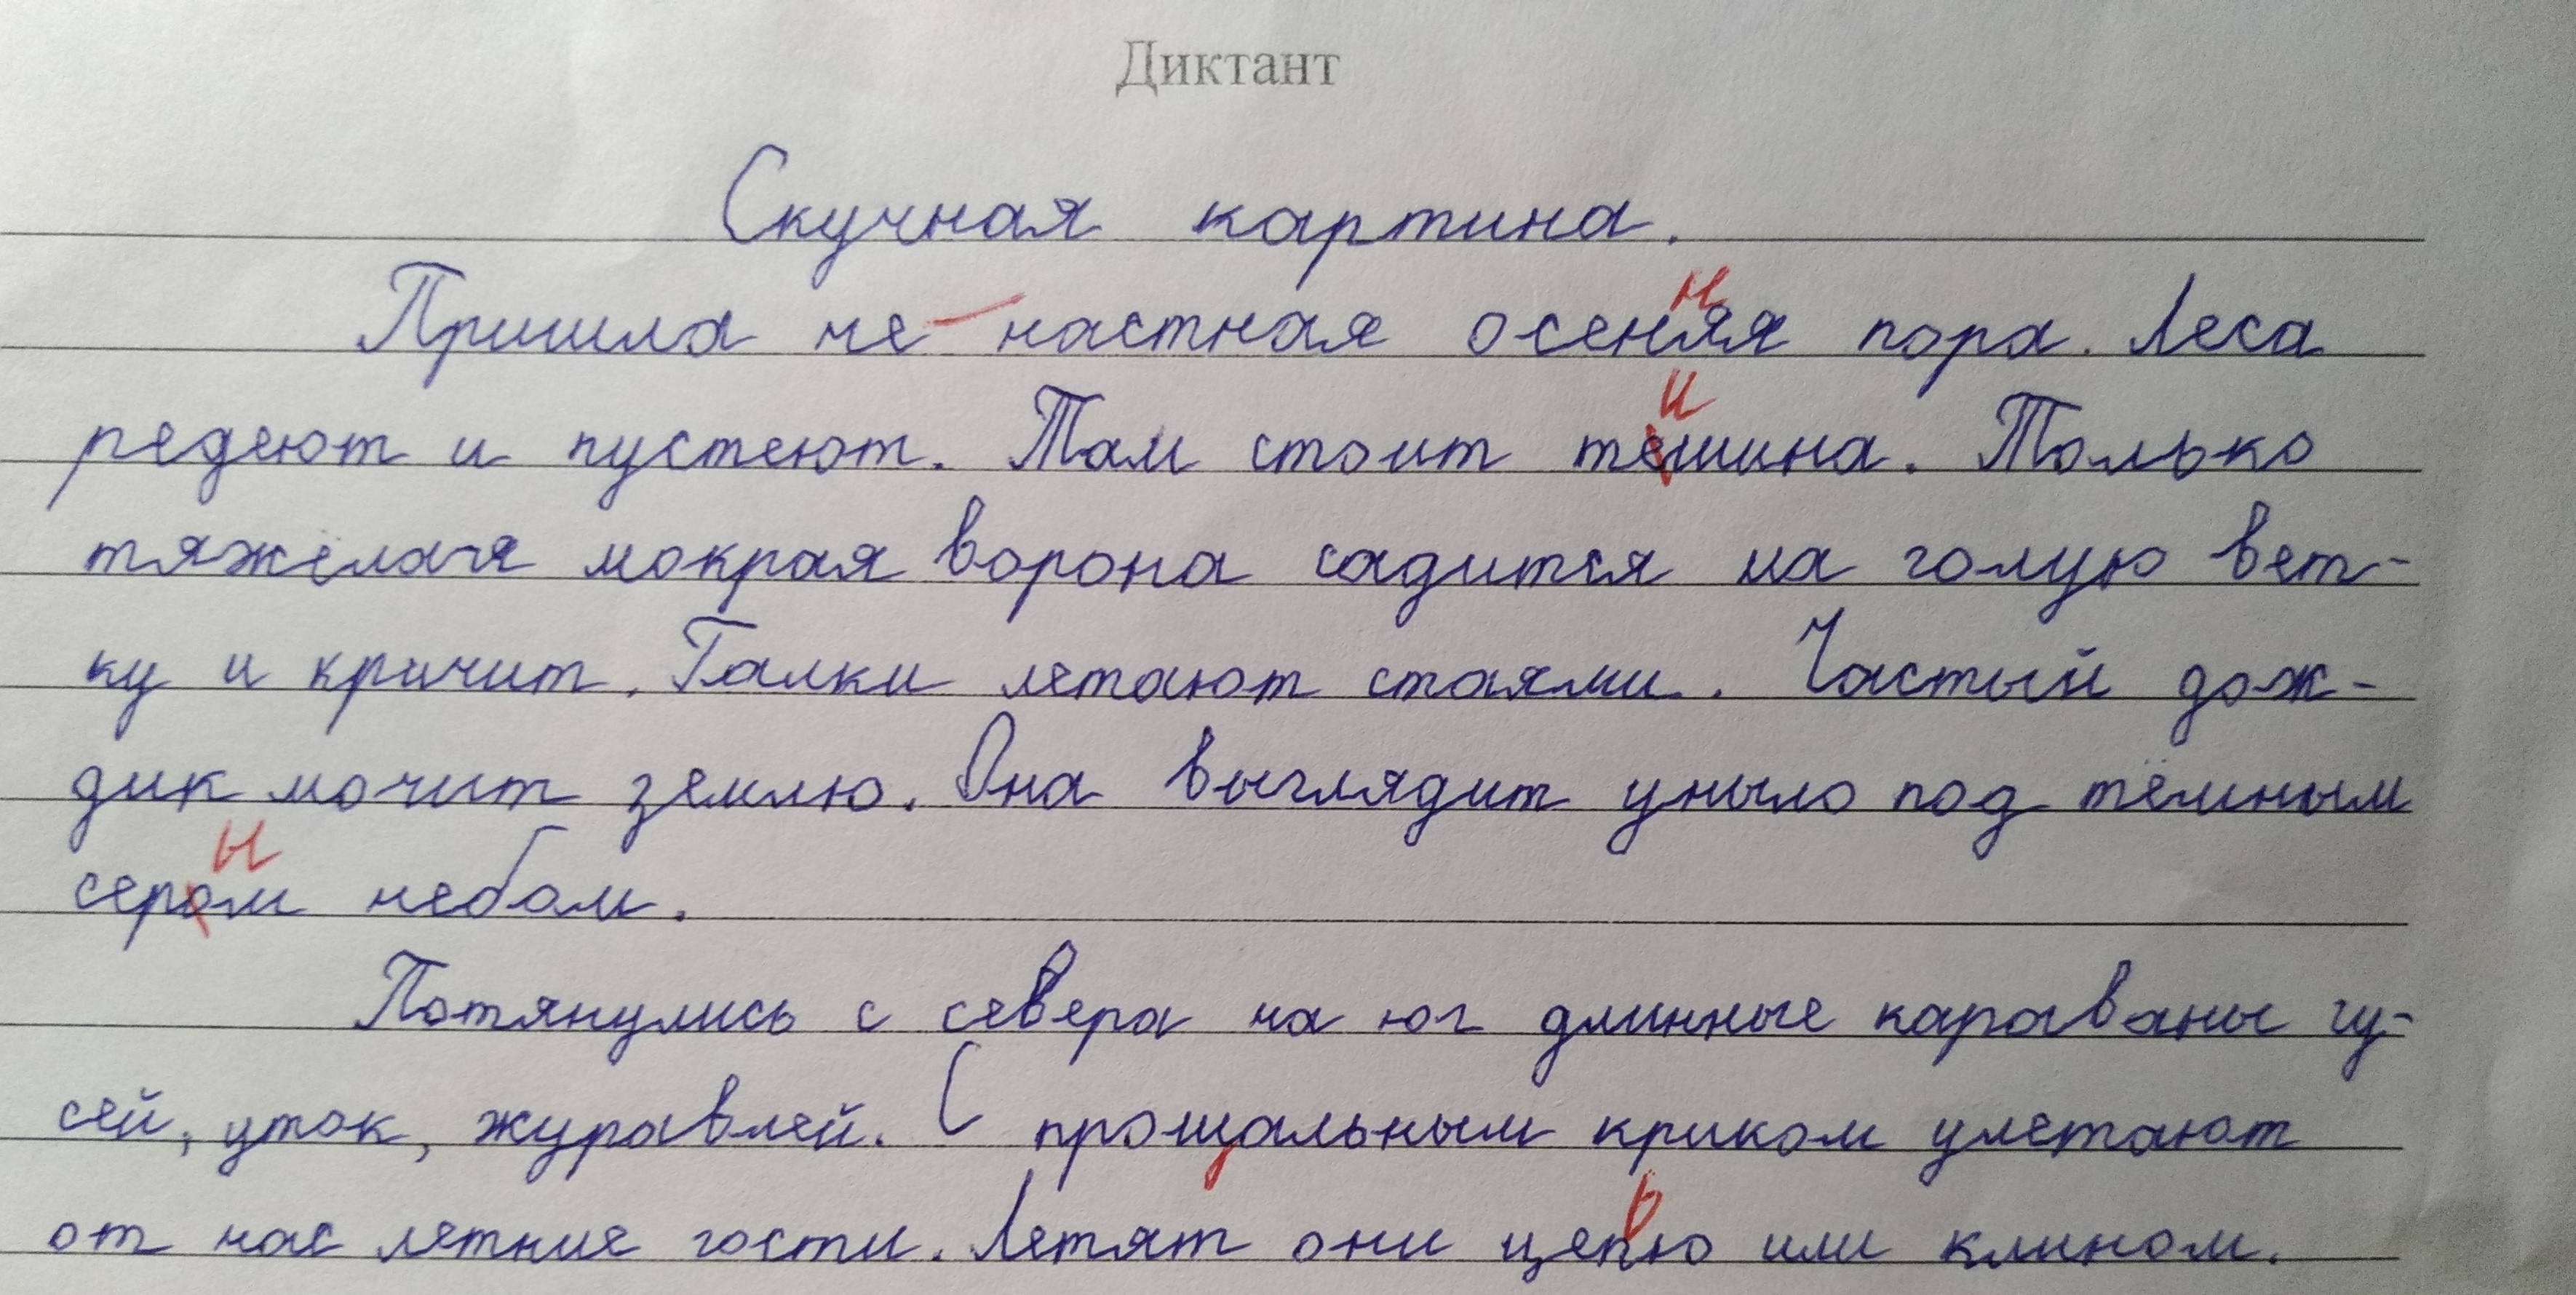 Диктант
Скучная картина.
Пришла не настная осеняя пора. Леса
редеют и пустеют. Там стоит тешина. Только
тяжёлачя мокрая ворона садится на голую вет-
ку и кричит. Галки летают стаями. Частый дож-
дик мочит землю. Она выглядит уныло под тёмным
сером небом.
Потянулись с севера на юг длинные караваны гу-
сей, уток, журавлей. С прошальным криком улетают
от нас летние гости. Летят они цепю или клином.